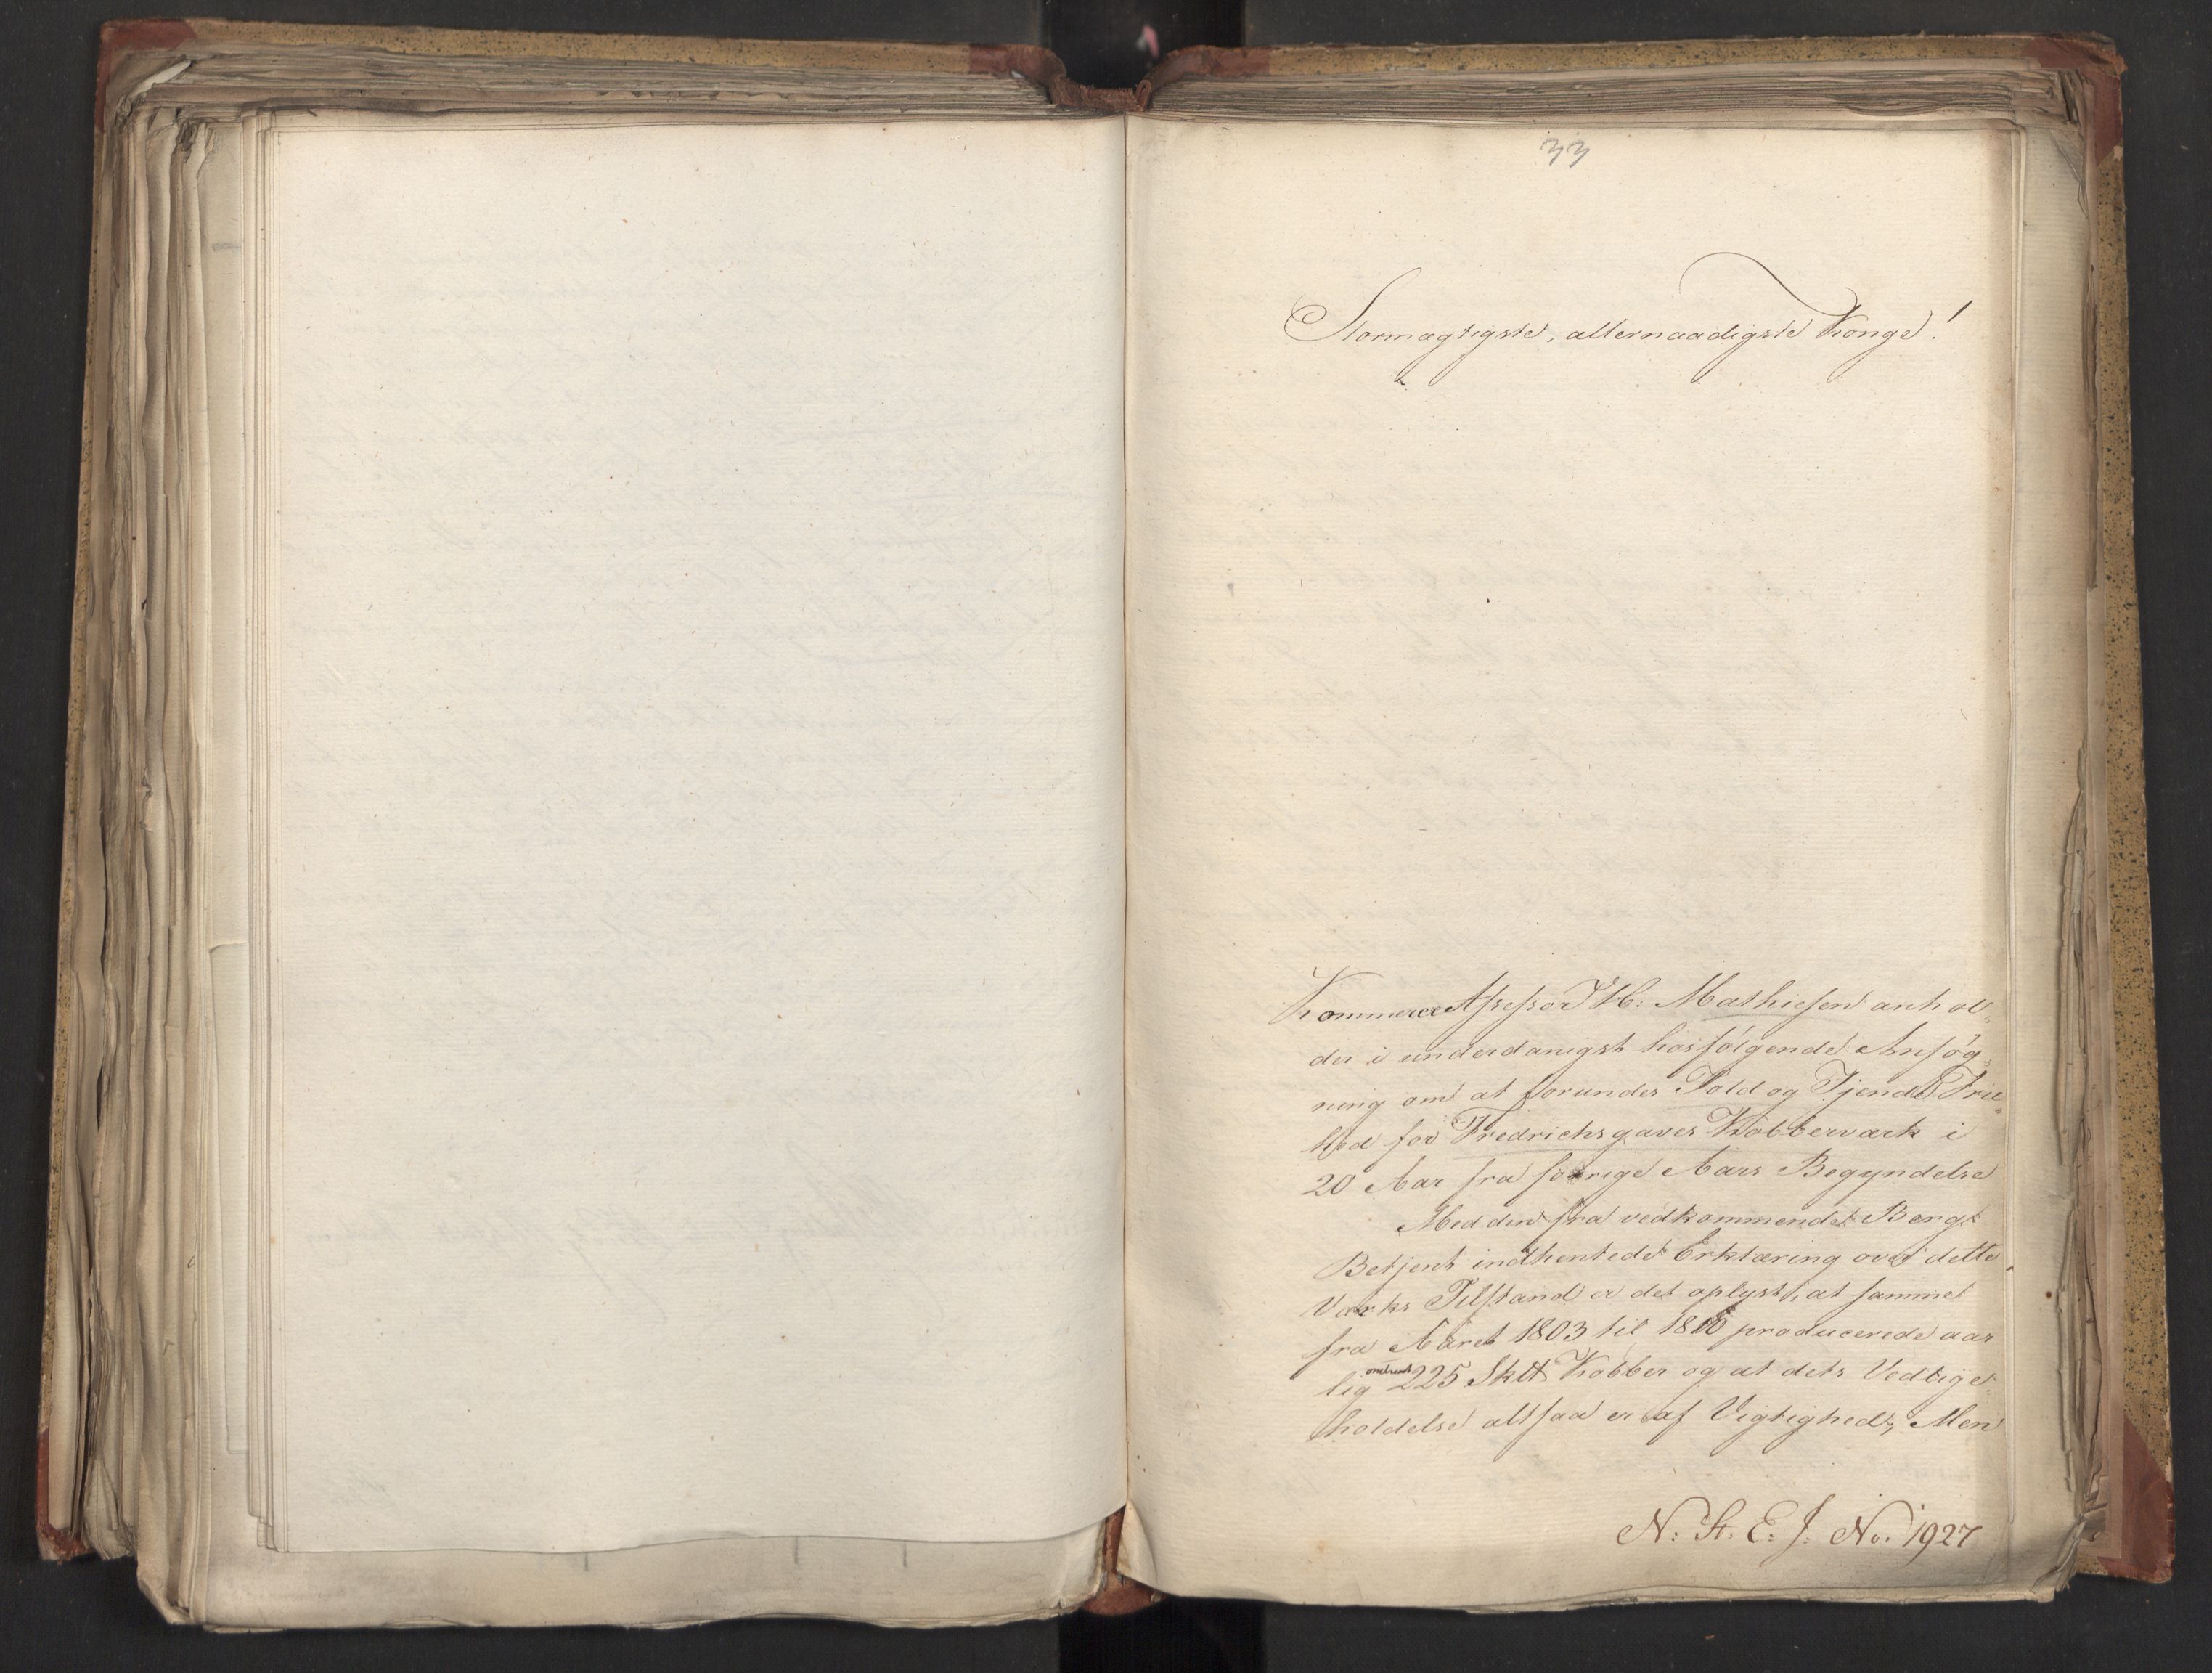 33
Stormægtigste, allernaadigste Konge!
Kommerce Assessor J H: Mathiesen anhol-
der i underdanigst hosfølgende Ansøg-
ning om at forundes Told og Tjende Frie-
hed for Fredrichsgaves Kobberværk i
20 Aar fra forrige Aars Begyndelse
Med den fra vedkommende Berg-
Betjent indhentede Erklæring over dette
Værks Tilstand er det oplyst, at samme
fra Aaret 1803 til 1810 producerede aar
lig omtrent 225 Sk℔ Kobber og at dets Vedlige-
holdelse altsaa er af Vigtighed, Men
N: St. E: J: No. 1927